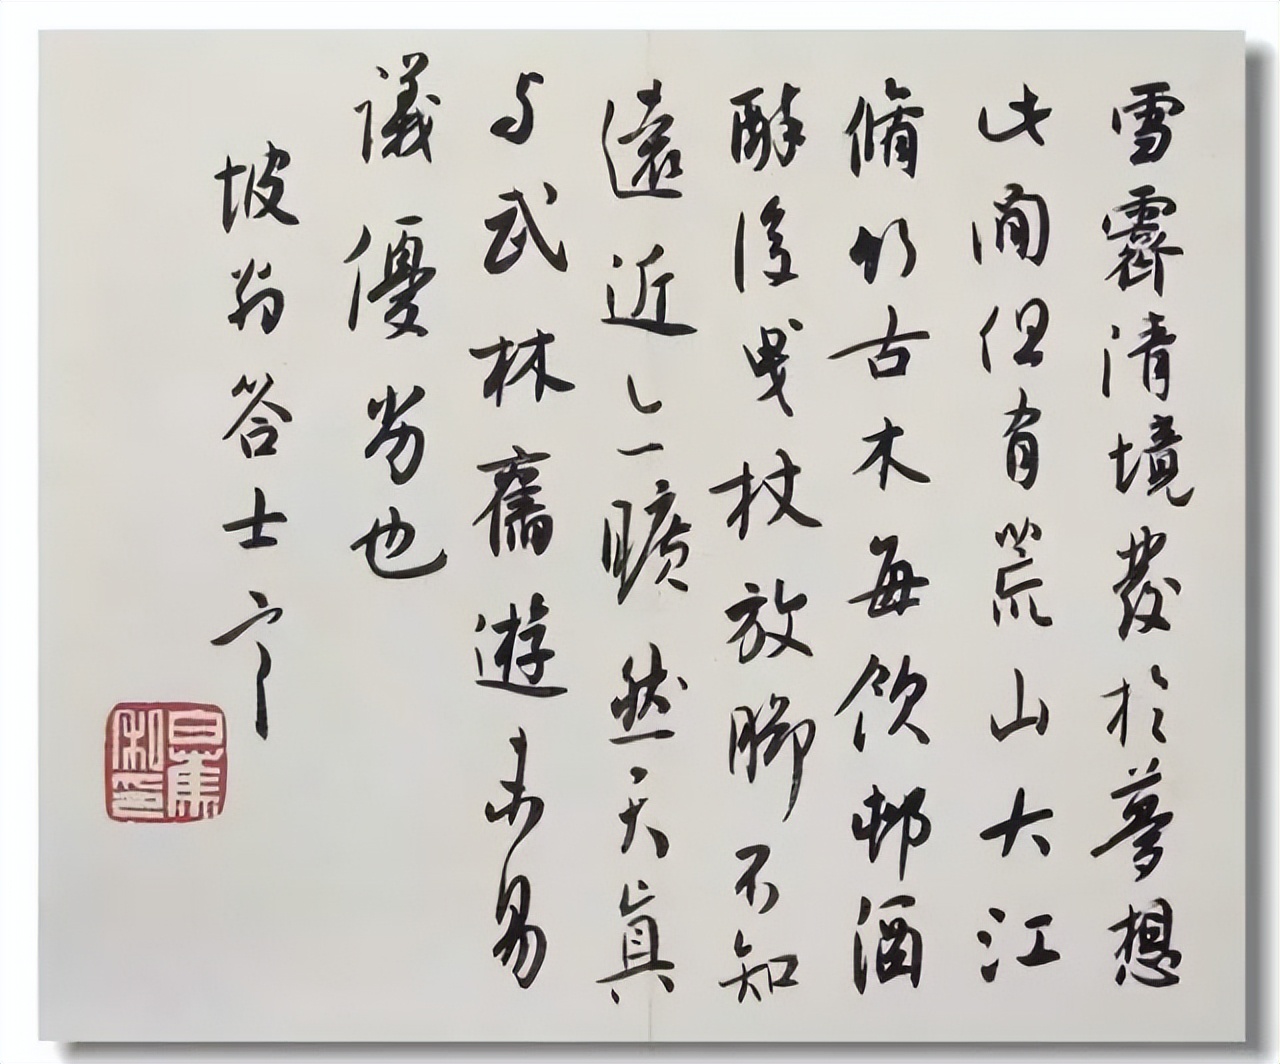 雪霽清境發於夢想
此間但有荒山大江
脩竹古木每飲邨酒
醉後曳杖放腳不知
遠近亦曠然天真
与武林舊遊未易
議優劣也
坡翁答士
白蕉私印